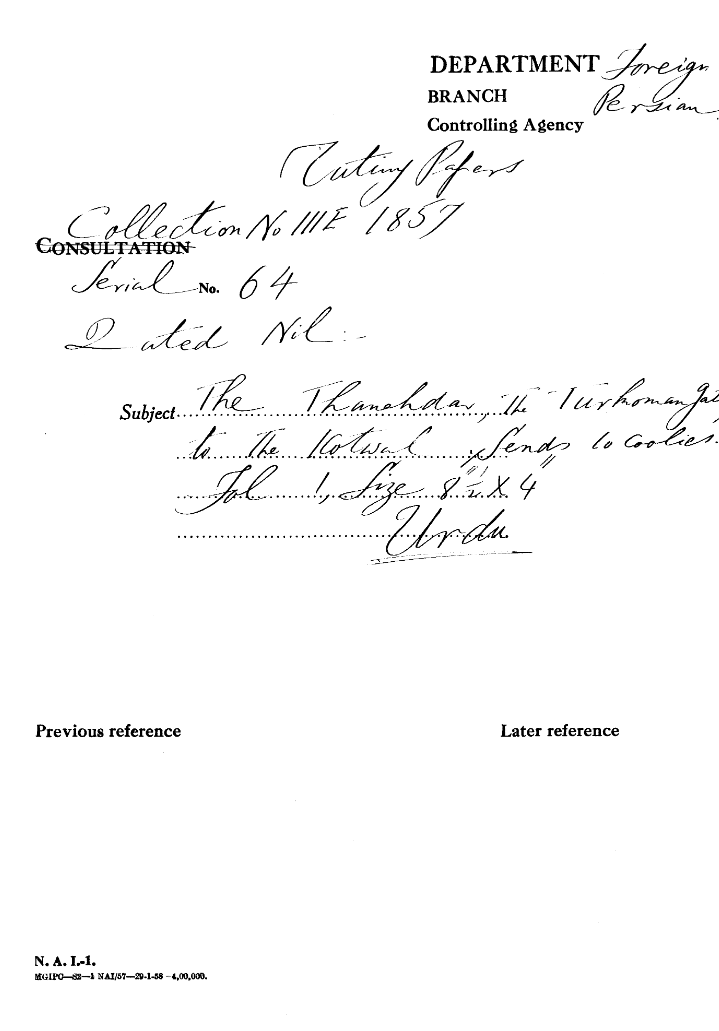 DEPARTMENT Foreign
BRANCH Persian
Controlling Agency
Mutiny Papers
Collection No IIIE 1857
CONSULTATION
Serial No. 64
Dated Nil:-
Subject The Thanehdar, the Turkoman Gate
to the Kotwal, Sends 10 coolies.
Fol 1, Size 8½" X 4"
Urdu
Previous reference Later reference
N. A. I.-1.
MGIPC—S2—1 NAI/57—29-1-58—4,00,000.